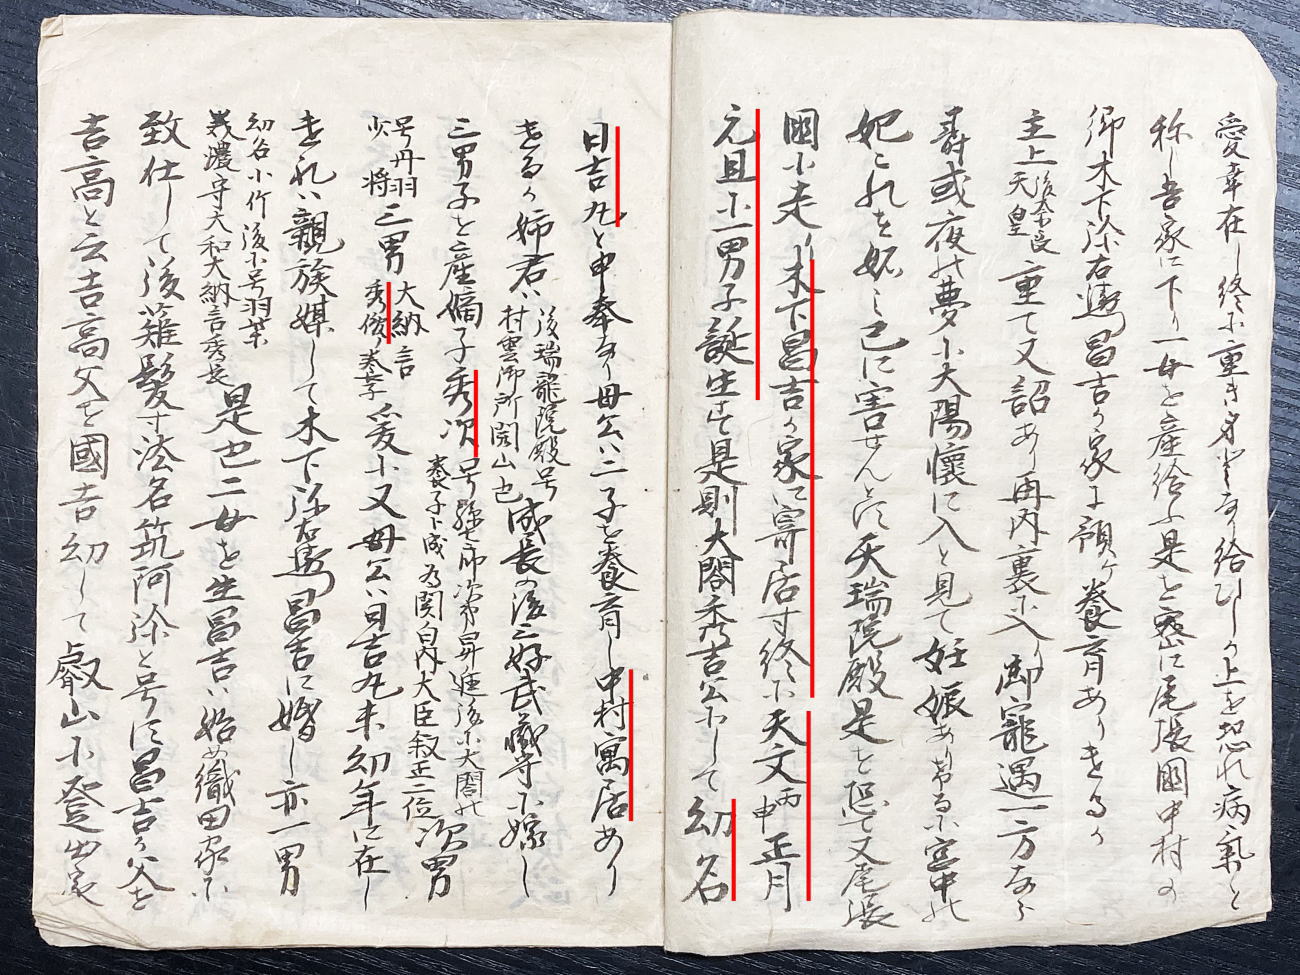 愛幸在し終に重き身となり給ひしか上を恐れ病氣と
称し吾家に下り一女を産給ふ是を密に尾張國中村の
郷木下弥右衛門昌吉か家に預け養育ありきるか
主上後奈良天皇重て又詔あり再内裏に入御寵遇一方ならす
尋或夜の夢に大陽懐に入と見て妊娠あり
妃これを妬み已に害せんとす天瑞院殿是を恐て又尾張
國に走り木下昌吉か家に寄居す終に天文丙申正月
元旦に一男子誕生す是則大閤秀吉公にして幼名
日吉丸と申奉る母公ハ二子を養育し中村寓居あり
きるか姉君ハ後瑞龍院殿号村雲御所開山也成長の後三好武蔵守に嫁し
三男子を産嫡子秀次養子ト成為関白内大臣叙正二位次男
号丹羽少将三男大納言秀俊養子爰に又母公ハ日吉丸未幼年に在し
きれハ親族媒して木下弥右衛門昌吉に婚し亦一男
幼名小竹後に号羽柴美濃守大和大納言秀長是也二女を生昌吉ハ始め織田家に
致仕して後薙髪す法名筑阿弥と号す昌吉か父を
吉高と云吉高父を國吉幼して叡山に登出家